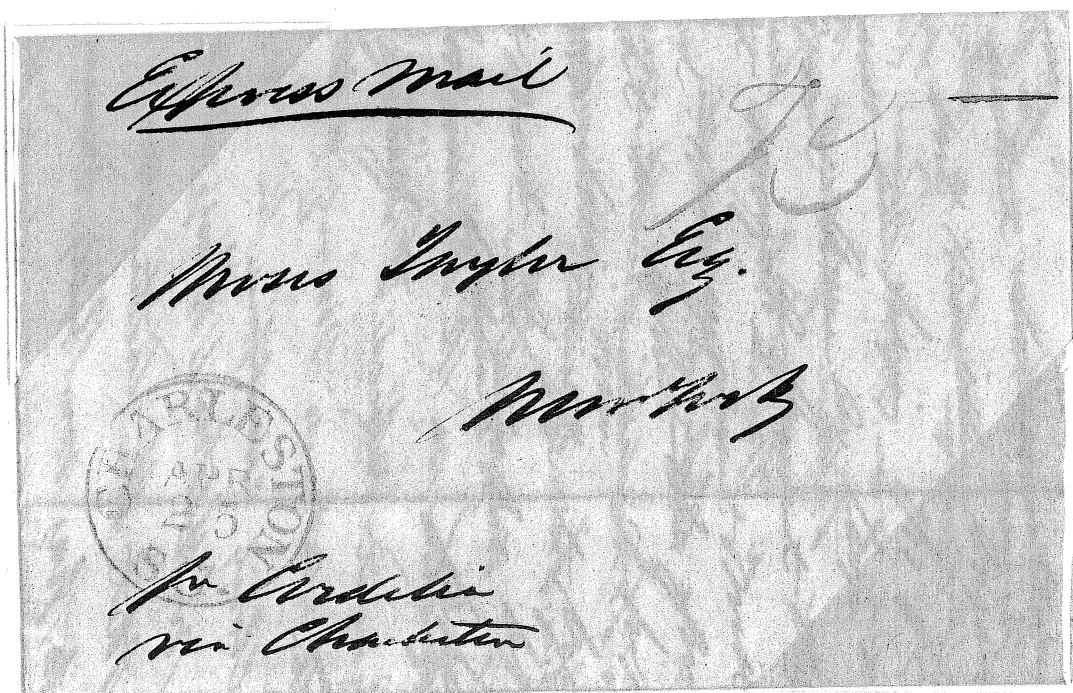 Express Mail
75
Moses Taylor Esq.
New York
CHARLESTON
APR
25
S
pr Cordelia
via Charleston